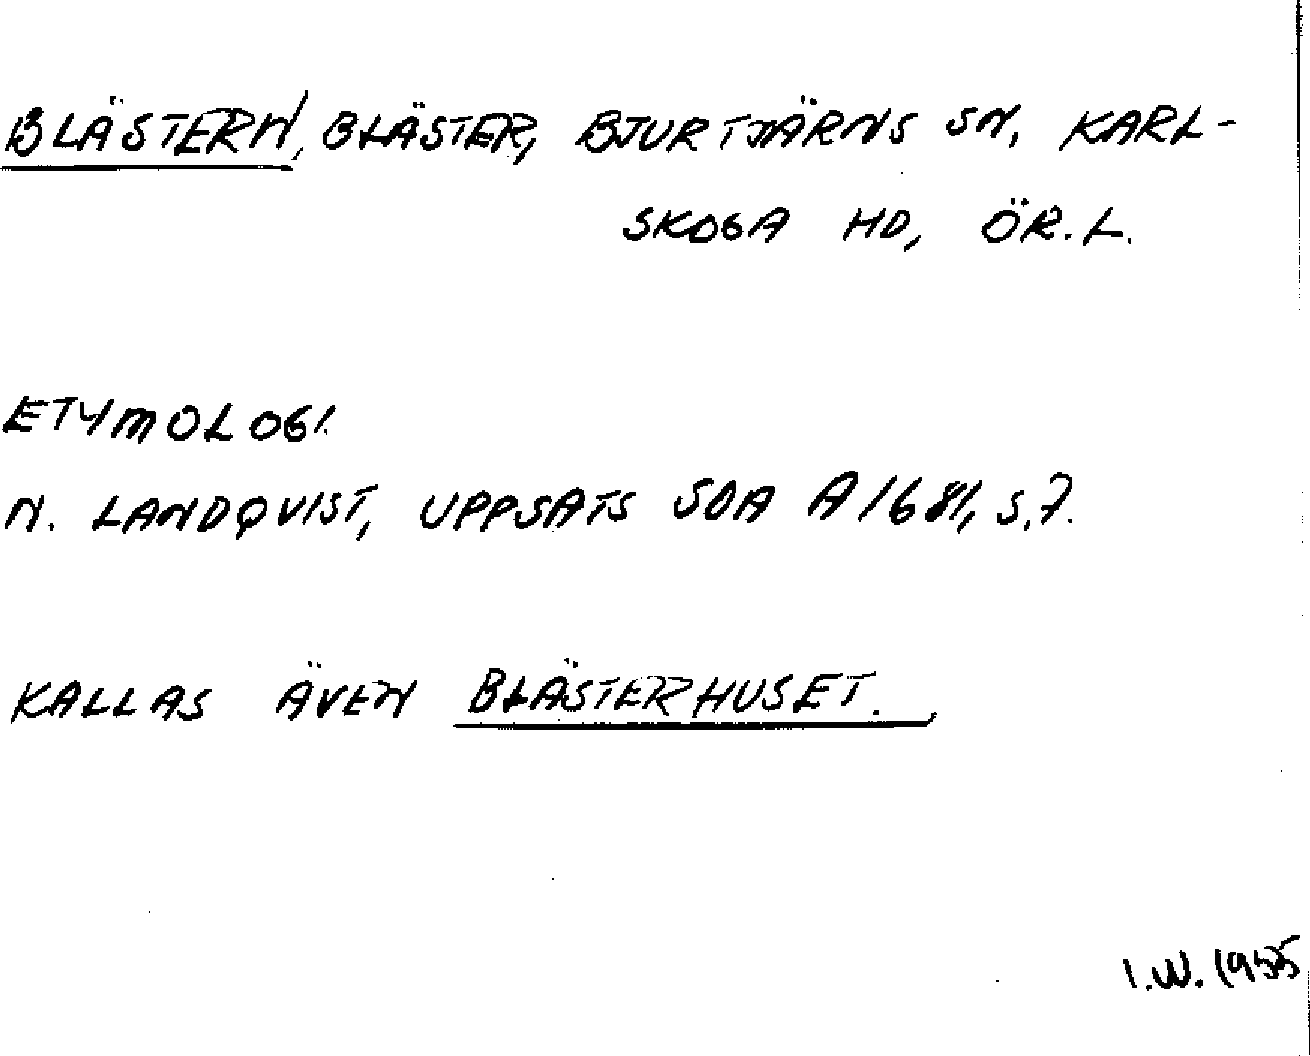 BLÄSTERN, BLÄSTER, BJURTJÄRNS SN, KARL-
SKOGA HD, ÖR.L.
ETYMOLOGI.
N. LANDQVIST, UPPSATS SOA A 1681, S.7.
KALLAS ÄVEN BLÄSTERHUSET.
I.W. 1955